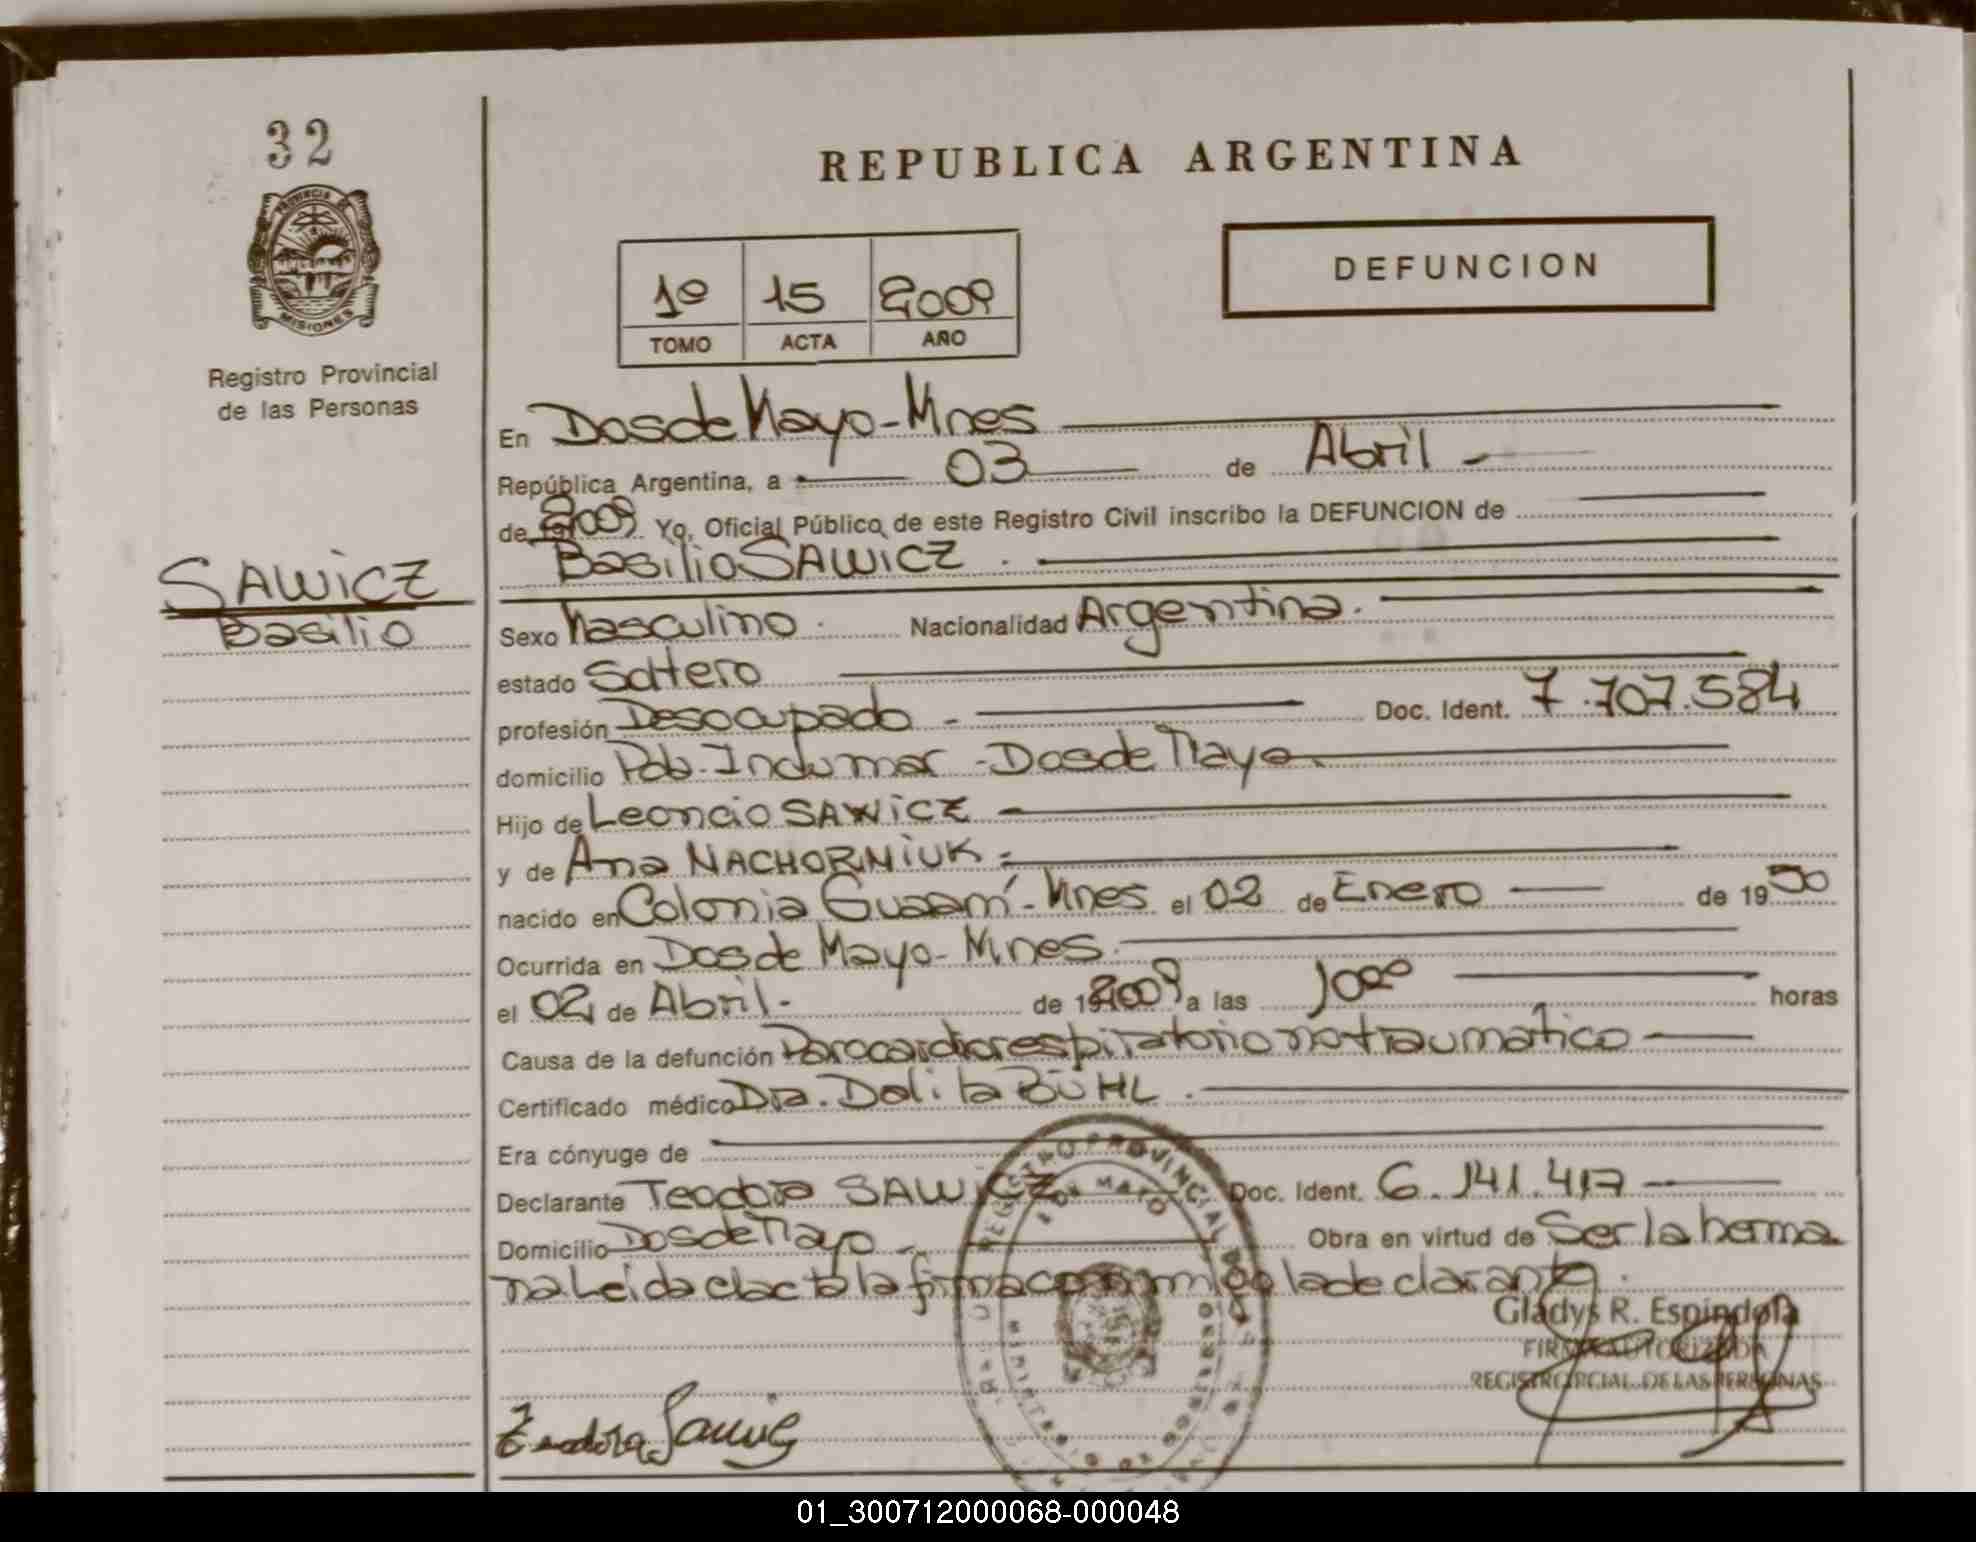 32
REPUBLICA ARGENTINA
PROVINCIA DE
MISIONES
DEFUNCION
1º 15 2009
TOMO ACTA AÑO
Registro Provincial
de las Personas
En Dos de Mayo - Mnes
República Argentina, a 03 de Abril
de 2009 Yo, Oficial Público de este Registro Civil inscribo la DEFUNCION de
Basilio SAWICZ
SAWICZ
Basilio
Sexo Masculino Nacionalidad Argentina.
estado Soltero
profesión Desocupado - Doc. Ident. 7.707.584
domicilio Pob. Indumar - Dos de Mayo
Hijo de Leoncio SAWICZ
y de Ana NACHORNIUK
nacido en Colonia Guaraní - Mnes el 02 de Enero de 1950
Ocurrida en Dos de Mayo - Mnes.
el 02 de Abril. de 2009 a las horas
Causa de la defunción Parocardiorespiratorio no traumático
Certificado médico Dra. Dalila BÜHL.
Era cónyuge de
Declarante Teodora SAWICZ Doc. Ident. 6.141.417
Domicilio Dos de Mayo Obra en virtud de Ser la herma
na Leida el acta la firma conmigo la declarante.
REGISTRO PROVINCIAL
2 DE MAYO
Gladys R. Espindola
FIRMA AUTORIZADA
REGISTRO PCIAL. DE LAS PERSONAS
Teodora Sawicz
01_300712000068-000048